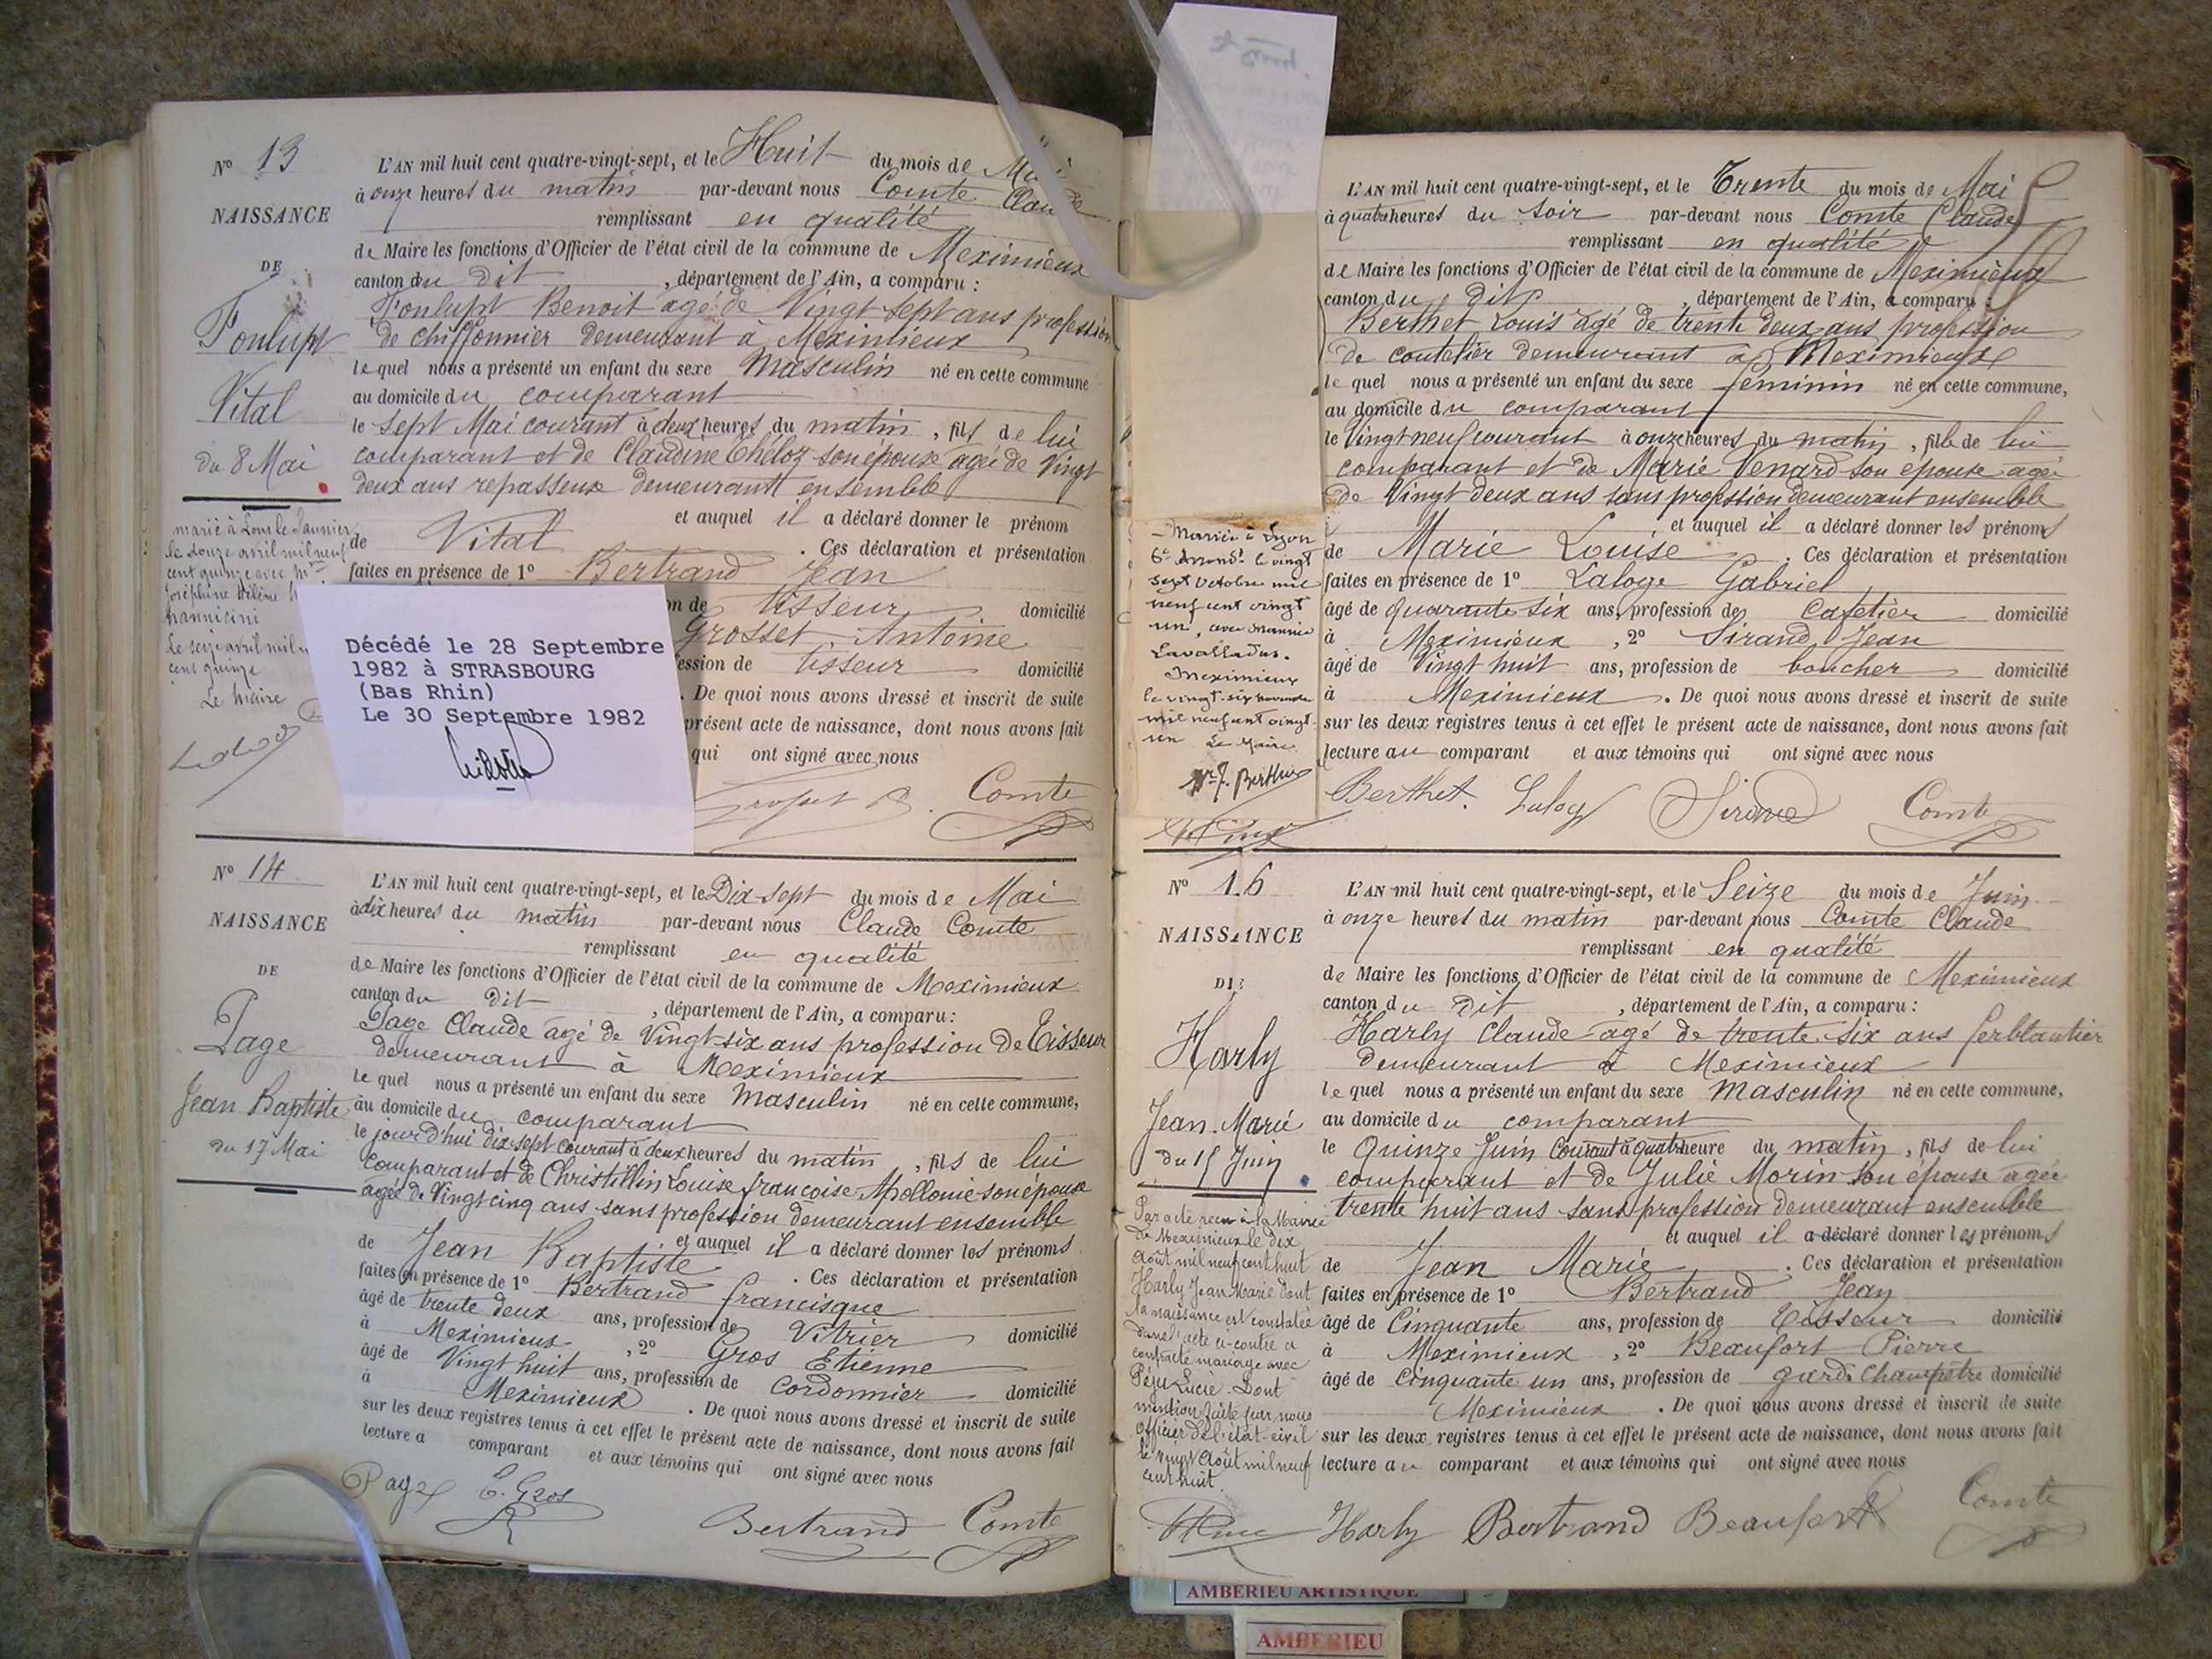 N° 13
NAISSANCE
DE
Fonlupt
Vital
du 8 Mai
marié à Lons le Saunier
le douze avril mil neuf
cent quinze avec
Joséphine Hélène
Le seize avril mil
cent quinze
Le Maire
L'AN mil huit cent quatre-vingt-sept, et le Huit du mois de Mai
à onze heures du matin par-devant nous Comte Claude
remplissant en qualité
de Maire les fonctions d'Officier de l'état civil de la commune de Meximieux
canton du dit, département de l'Ain, a comparu :
Fonlupt Benoit agé de Vingt sept ans profession
de chiffonnier demeurant à Meximieux
lequel nous a présenté un enfant du sexe Masculin né en cette commune
au domicile du comparant
le sept Mai courant à deux heures du matin, fils de lui
comparant et de Claudine Chéloz son épouse agée de Vingt
deux ans repasseuse demeurant ensemble
et auquel il a déclaré donner le prénom
de Vital. Ces déclaration et présentation
faites en présence de 1° Bertrand Jean
n de tisseur domicilié
Grosset Antoine
ession de tisseur domicilié
. De quoi nous avons dressé et inscrit de suite
présent acte de naissance, dont nous avons fait
qui ont signé avec nous
Comte
Décédé le 28 Septembre
1982 à STRASBOURG
(Bas Rhin)
Le 30 Septembre 1982
N° 14
NAISSANCE
DE
Page
Jean Baptiste
du 17 Mai
L'AN mil huit cent quatre-vingt-sept, et le Dix-sept du mois de Mai
à dix heures du matin par-devant nous Claude Comte
remplissant en qualité
de Maire les fonctions d'Officier de l'état civil de la commune de Meximieux
canton du dit, département de l'Ain, a comparu :
Page Claude agé de Vingt-six ans profession de Tisseur
demeurant à Meximieux
lequel nous a présenté un enfant du sexe Masculin né en cette commune,
au domicile du comparant
le jourd'hui dix sept courant à deux heures du matin, fils de lui
comparant et de Christillin Louise françoise Apollonie son épouse
agée de Vingt cinq ans sans profession demeurant ensemble
et auquel il a déclaré donner les prénoms
de Jean Baptiste. Ces déclaration et présentation
faites en présence de 1° Bertrand francisque
âgé de trente deux ans, profession de Vitrier domicilié
à Meximieux, 2° Gros Etienne
âgé de Vingt huit ans, profession de Cordonnier domicilié
à Meximieux. De quoi nous avons dressé et inscrit de suite
sur les deux registres tenus à cet effet le présent acte de naissance, dont nous avons fait
lecture a comparant et aux témoins qui ont signé avec nous
Page E. Gros
Bertrand Comte
L'AN mil huit cent quatre-vingt-sept, et le Trente du mois de Mai
à quatre heures du soir par-devant nous Comte Claude
remplissant en qualité
de Maire les fonctions d'Officier de l'état civil de la commune de Meximieux
canton du dit, département de l'Ain, a comparu :
Berthet Louis agé de trente deux ans profession
de coutelier demeurant à Meximieux
lequel nous a présenté un enfant du sexe féminin né en cette commune,
au domicile du comparant
le Vingt neuf courant à onze heures du matin, fille de lui
comparant et de Marie Venard son épouse agée
de Vingt deux ans sans profession demeurant ensemble
et auquel il a déclaré donner les prénoms
de Marie Louise. Ces déclaration et présentation
faites en présence de 1° Laloge Gabriel
âgé de quarante six ans, profession de Cafetier domicilié
à Meximieux, 2° Sirand Jean
âgé de Vingt huit ans, profession de boucher domicilié
à Meximieux. De quoi nous avons dressé et inscrit de suite
sur les deux registres tenus à cet effet le présent acte de naissance, dont nous avons fait
lecture au comparant et aux témoins qui ont signé avec nous
Berthet. Laloge Sirand Comte
Mariée à Lyon
6e Arrondt le vingt
sept octobre mil
neuf cent vingt
un, avec
Lavalladus.
Meximieux
le vingt-six novembre
mil neuf cent vingt
un Le Maire
N° 16
NAISSANCE
DE
Harly
Jean-Marie
du 15 Juin
Par acte reçu à la Mairie
de Meximieux le dix
Août mil neuf cent huit
Harly Jean Marie dont
la naissance est constatée
dans l'acte ci-contre a
contracté mariage avec
Péju Lucie. Dont
mention faite par nous
Officier de l'état-civil
le vingt Août mil neuf
cent huit.
L'AN mil huit cent quatre-vingt-sept, et le Seize du mois de Juin
à onze heures du matin par-devant nous Comte Claude
remplissant en qualité
de Maire les fonctions d'Officier de l'état civil de la commune de Meximieux
canton du Dit, département de l'Ain, a comparu :
Harly Claude agé de trente six ans ferblantier
demeurant à Meximieux
lequel nous a présenté un enfant du sexe Masculin né en cette commune,
au domicile du comparant
le Quinze Juin Courant à quatre heure du matin, fils de lui
comparant et de Julie Morin son épouse agée
trente huit ans sans profession demeurant ensemble
et auquel il a déclaré donner les prénoms
de Jean Marie. Ces déclaration et présentation
faites en présence de 1° Bertrand Jean
âgé de Cinquante ans, profession de Tisseur domicilié
à Meximieux, 2° Beaufort Pierre
âgé de Cinquante un ans, profession de garde Champêtre domicilié
Meximieux. De quoi nous avons dressé et inscrit de suite
sur les deux registres tenus à cet effet le présent acte de naissance, dont nous avons fait
lecture au comparant et aux témoins qui ont signé avec nous
Harly Bertrand Beaufort Comte
AMBERIEU ARTISTIQUE
AMBERIEU